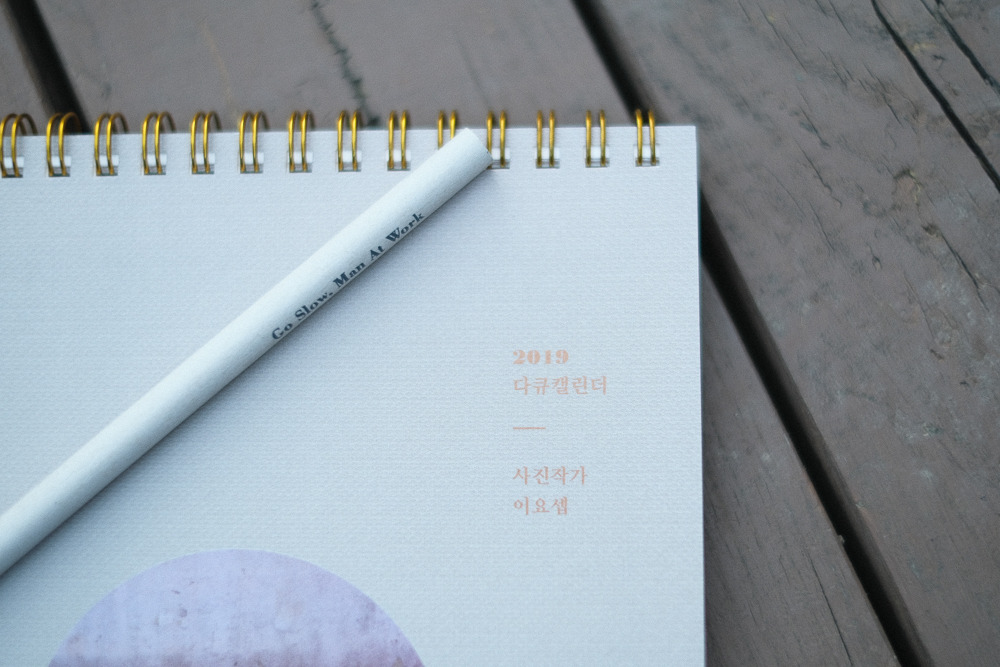 Go Slow. Man At Work
2019
다큐캘린더
사진작가
이요셉